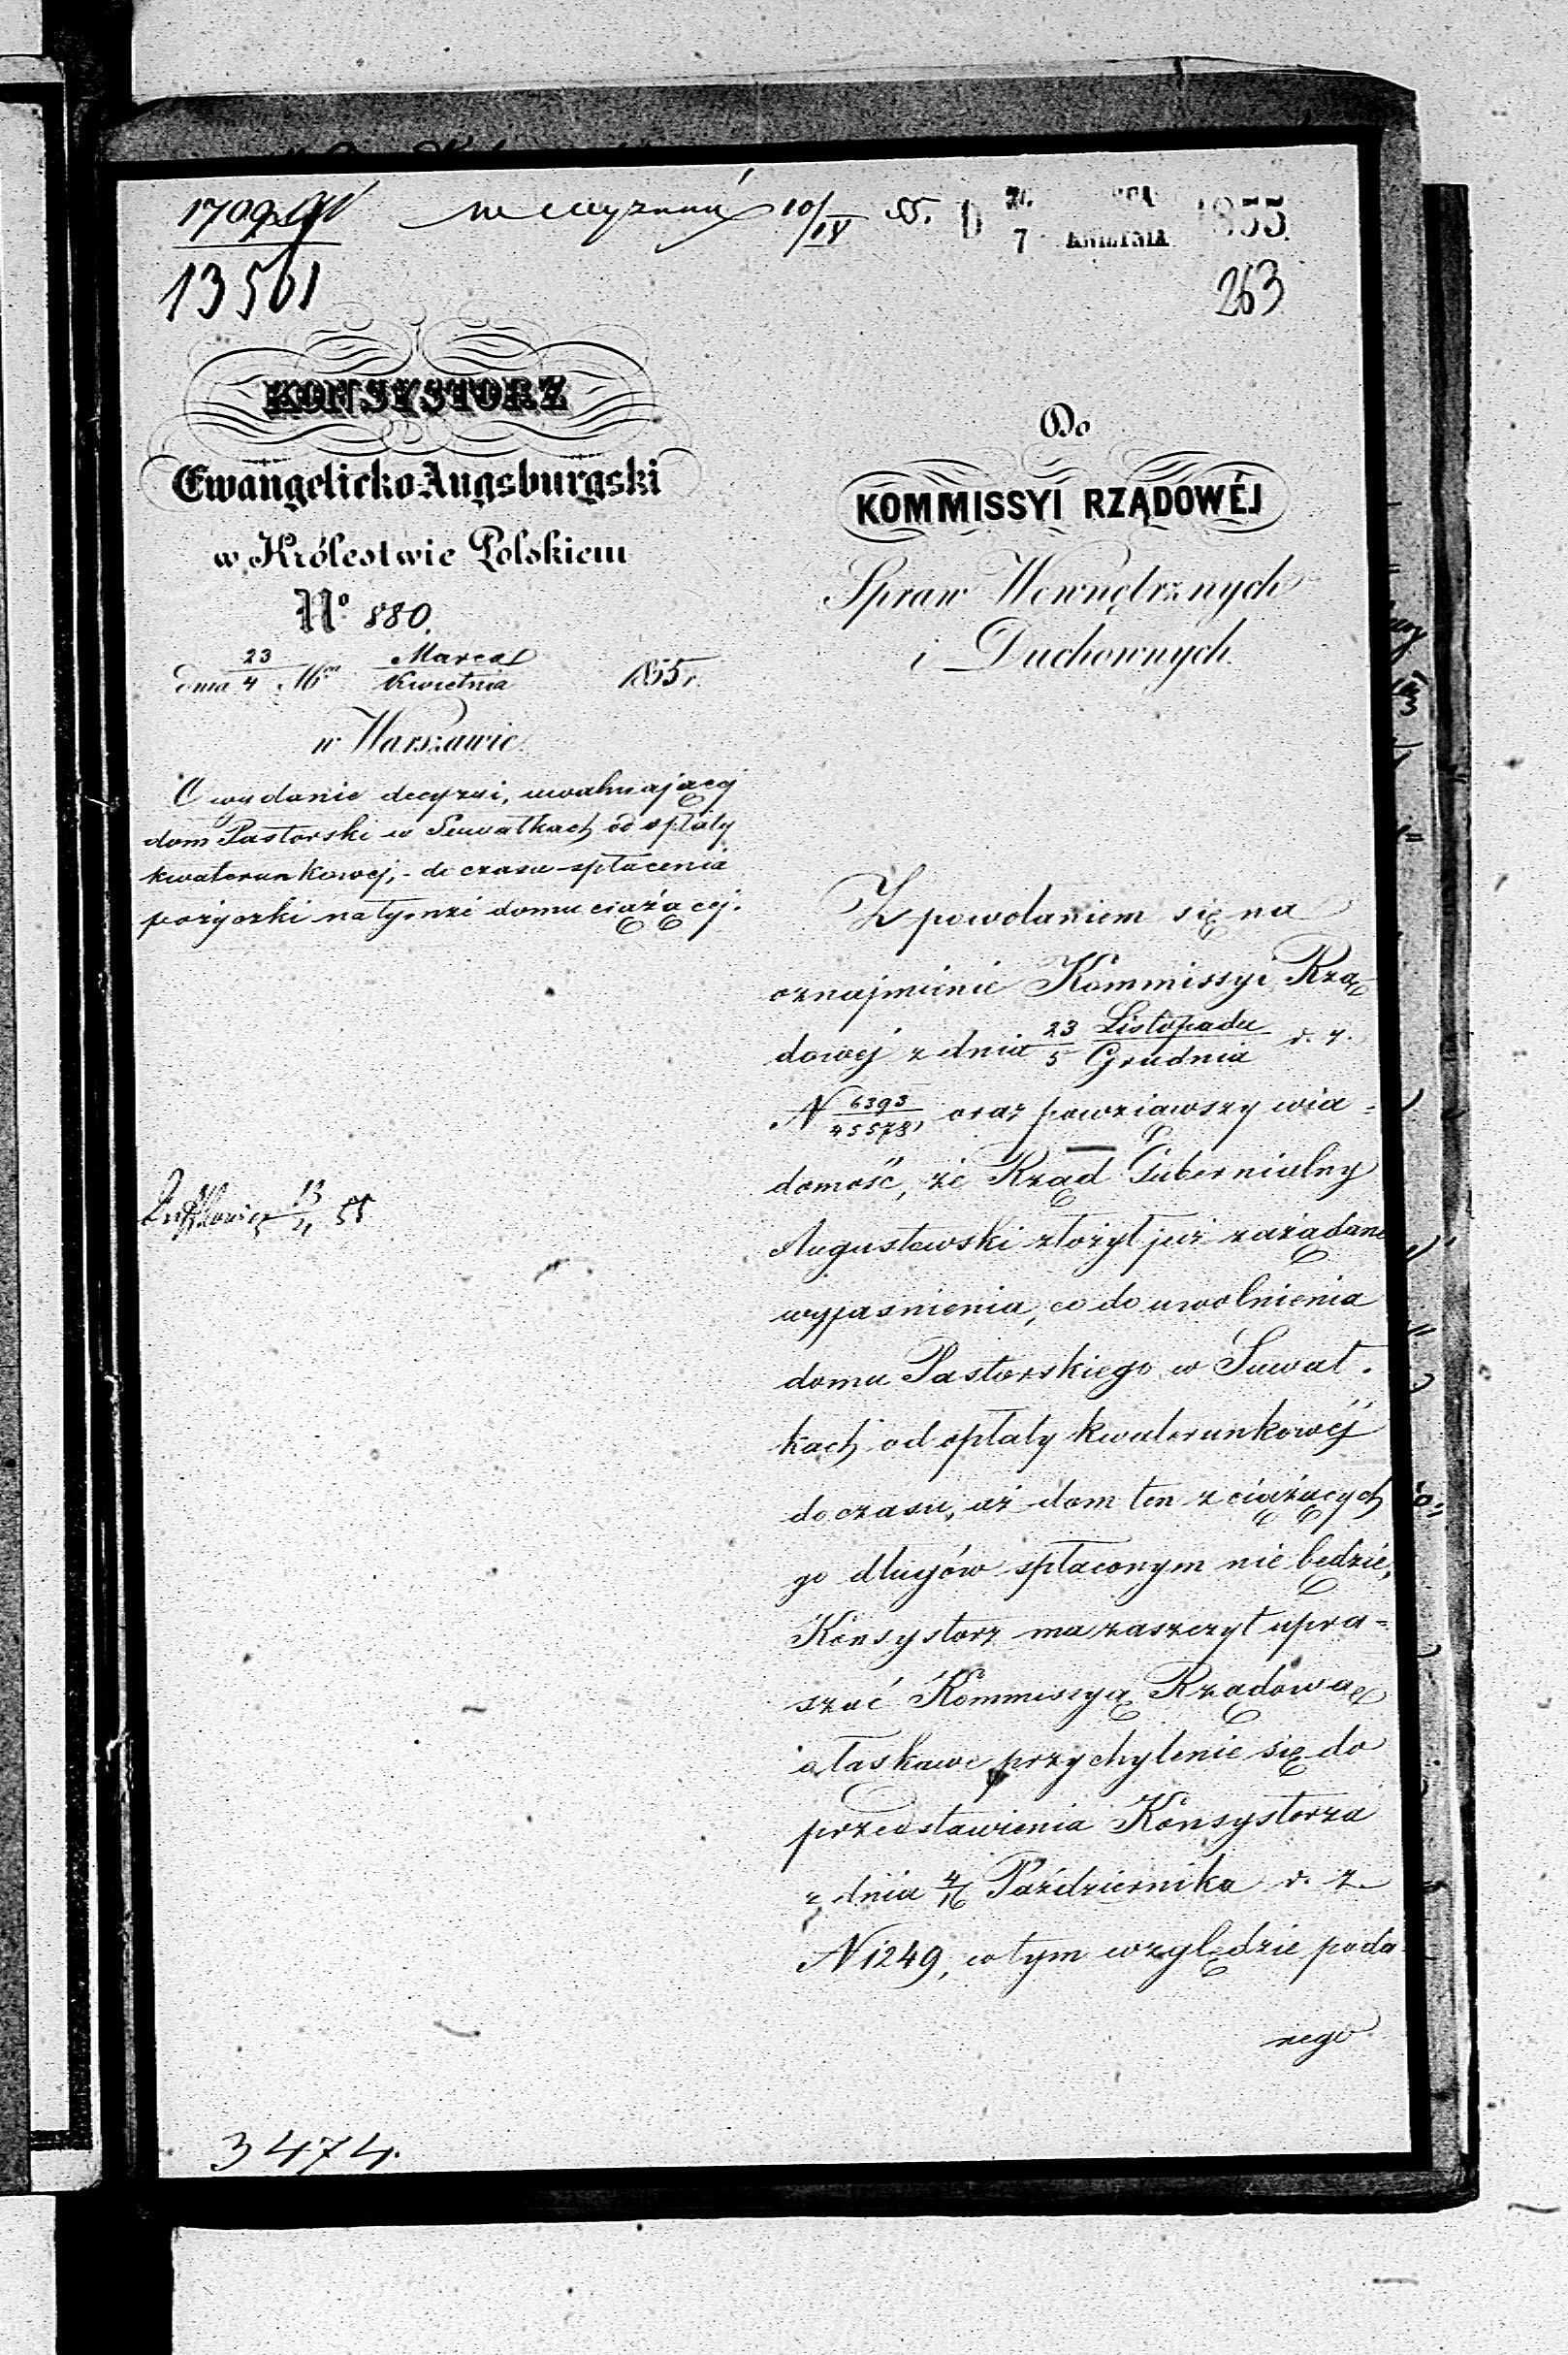 1709
13561
10/IV 55.
7 KWIETNIA 1855.
263
KONSYSTORZ
Ewangelicko-Augsburgski
w Królestwie Polskiem
No. 880.
dnia 23/4 Mca Marca/Kwietnia 1855 r.
w Warszawie.
O wydanie decyzyi, uwalniającej
dom Pastorski w Suwałkach od opłaty
kwaterunkowej, - do czasu spłacenia
pożyczki na tymże domu ciążącej.
13/4 55
Do
KOMMISSYI RZĄDOWÉJ
Spraw Wewnętrznych
i Duchownych.
Z powołaniem się na
oznajmienie Kommissyi Rzą
dowej z dnia 23/5 Listopada/Grudnia r. z.
N 6393/45578, oraz powziąwszy wia=
domość, że Rząd Gubernialny
Augustowski złożył już zażądane
wyjasnienia, co do uwolnienia
domu Pastorskiego w Suwał-
kach od opłaty kwaterunkowéj
do czasu, aż dom ten z ciążących
go długów spłaconym nie będzie,
Konsystorz ma zaszczyt upra=
szać Kommissyą Rządową
o łaskawe przychylenie się do
przedstawienia Konsystorza
z dnia 4/16 Października r. z.
N 1249, w tym względzie poda-
nego
3474.